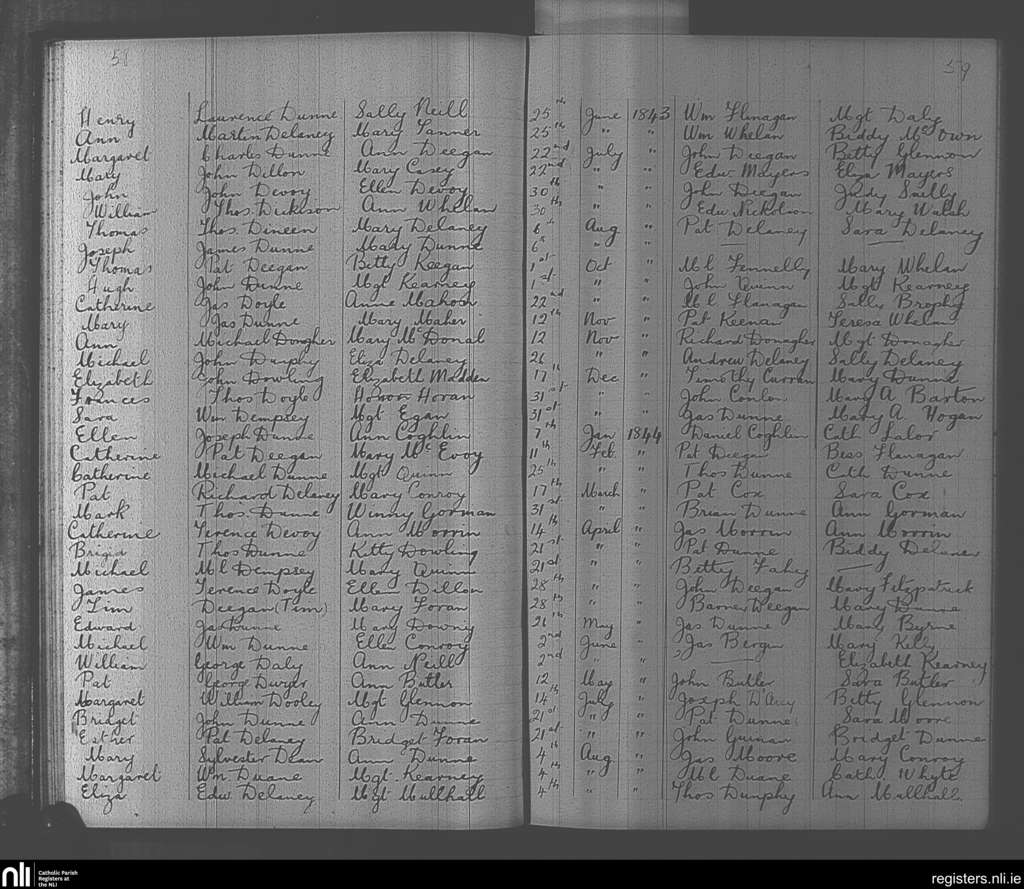 58 59
Henry Laurence Dunne Sally Neill 25th June 1843 Wm Flanagan Mgt Daly
Ann Martin Delaney Mary Tanner 25th " " Wm Whelan Biddy McOwn
Margaret Charles Dunne Ann Deegan 22nd July " John Deegan Betty Glennon
Mary John Dillon Mary Casey 22nd " " Edw. Mayers Eliza Mayers
John John Devoy Ellen Devoy 30th " " John Deegan Judy
William Thos. Dickison Ann Whelan 30th " " Edw Nickolson Mary Walsh
Thomas Thos. Dineen Mary Delaney 6th Aug " Pat Delaney Sara Delaney
Joseph James Dunne Mary Dunne 6th " " — —
Thomas Pat Deegan Betty Keegan 1st Oct " Ml Fennelly Mary Whelan
Hugh John Dunne Mgt Kearney 1st " " John Quinn Mgt Kearney
Catherine Jas Doyle Anne Mahon 22nd " " Ml Flanagan Sally Brophy
Mary Jas Dunne Mary Maher 12th Nov " Pat Keenan Teresa Whelan
Ann Michael Dongher Mary McDonal 12 Nov " Richard Donagher Mgt Donagher
Michael John Dunphy Eliza Delaney 26 " " Andrew Delaney Sally Delaney
Elizabeth John Dowling Elizabeth Madden 17th Dec " Timothy Curran Mary Dunne
Frances Thos Doyle Honor Horan 31st " " John Conlon Mary A Barton
Sara Wm Dempsey Mgt Egan 31st " " Jas Dunne Mary A Hogan
Ellen Joseph Dunne Ann Coghlin 7th Jan 1844 Daniel Coghlin Cath Lalor
Catherine Pat Deegan Mary McEvoy 11th Feb. " Pat Deegan Bess Flanagan
Catherine Michael Dunne Mgt Quinn 25th " " Thos Dunne Cath Dunne
Pat Richard Delaney Mary Conroy 17th March " Pat Cox Sara Cox
Mark Thos. Dunne Winny Gorman 31st " " Brian Dunne Ann Gorman
Catherine Terence Devoy Ann Morrin 14th April " Jas Morrin Ann Morrin
Brigid Thos Dunne Kitty Dowling 21st " " Pat Dunne Biddy Delaner
Michael Ml Dempsey Mary Quinn 21st " " Betty Fahey —
James Terence Doyle Ellen Dillon 28th " " John Deegan Mary Fitzpatrick
Tim Deegan (Tim) Mary Foran 28th " " Barney Deegan Mary Dunne
Edward Jas Dunne Mary Downy 26th May " Jas Dunne Mary Byrne
Michael Wm Dunne Ellen Conroy 2nd June " Jas Bergin Mary Kely
William George Daly Ann Neill 2nd " " — Elizabeth Kearney
Pat George Dwyer Ann Butler 12 May " John Butler Sara Butler
Margaret William Dooley Mgt Glennon 14th July " Joseph D'Arcy Betty Glennon
Bridget John Dunne Ann Dunne 21st " " Pat Dunne Sara Moore
Esther Pat Delaney Bridget Foran 21st " " John Guinan Bridget Dunne
Mary Sylvester Dean Ann Dunne 4th Aug " Jas Moore Mary Conroy
Margaret Wm Duane Mgt. Kearney 4th " " Ml Duane Cath. Whyte
Eliza Edw Delaney Mgt Mullhall 4th " " Thos Dunphy Ann Mullhall
nli Catholic Parish
Registers at
the NLI
registers.nli.ie